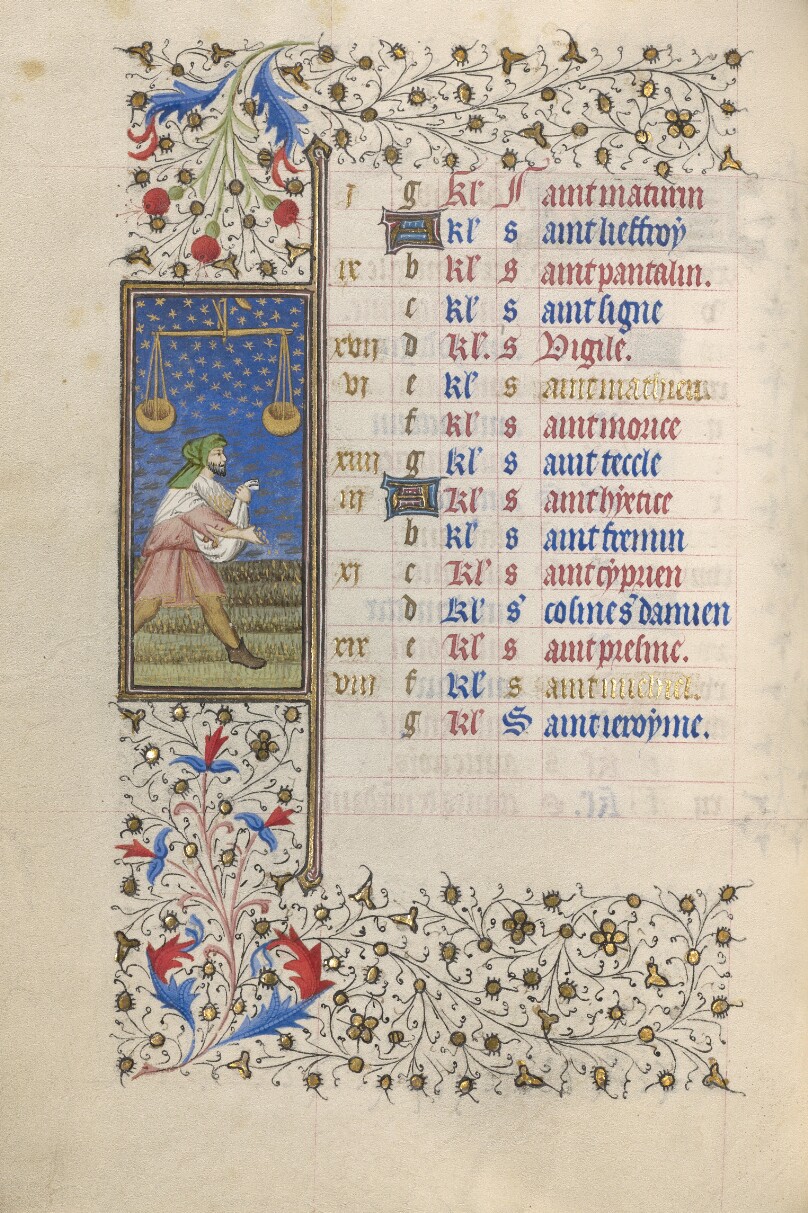 i g kl' Saint maturin
A kl' s aint lieffroy
ix b kl' s aint pantalin.
c kl' s aint signe
xvii d kl'. s Vigile.
vi e kl' s aint mathieu.
f kl' s aint morice
xiiii g kl' s aint teccle
iii A kl' s aint
b kl' s aint fremin
xi c kl' s aint cyprien
d kl' s' cosme s' damien
xix e kl' s aint presme.
viii f kl' s aint michiel.
g kl' S aint ieroyme.